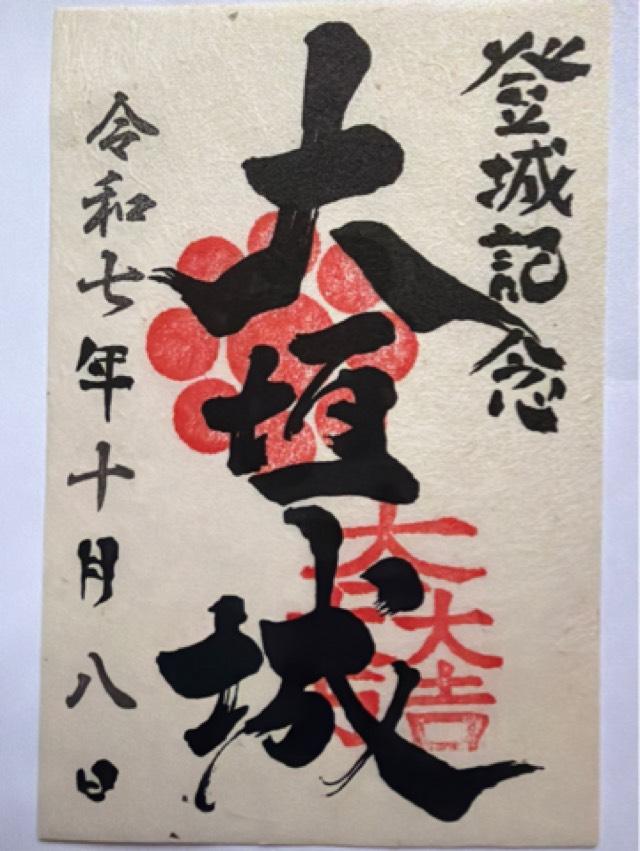 登城記念
大垣城
大一大万大吉
令和七年十月八日